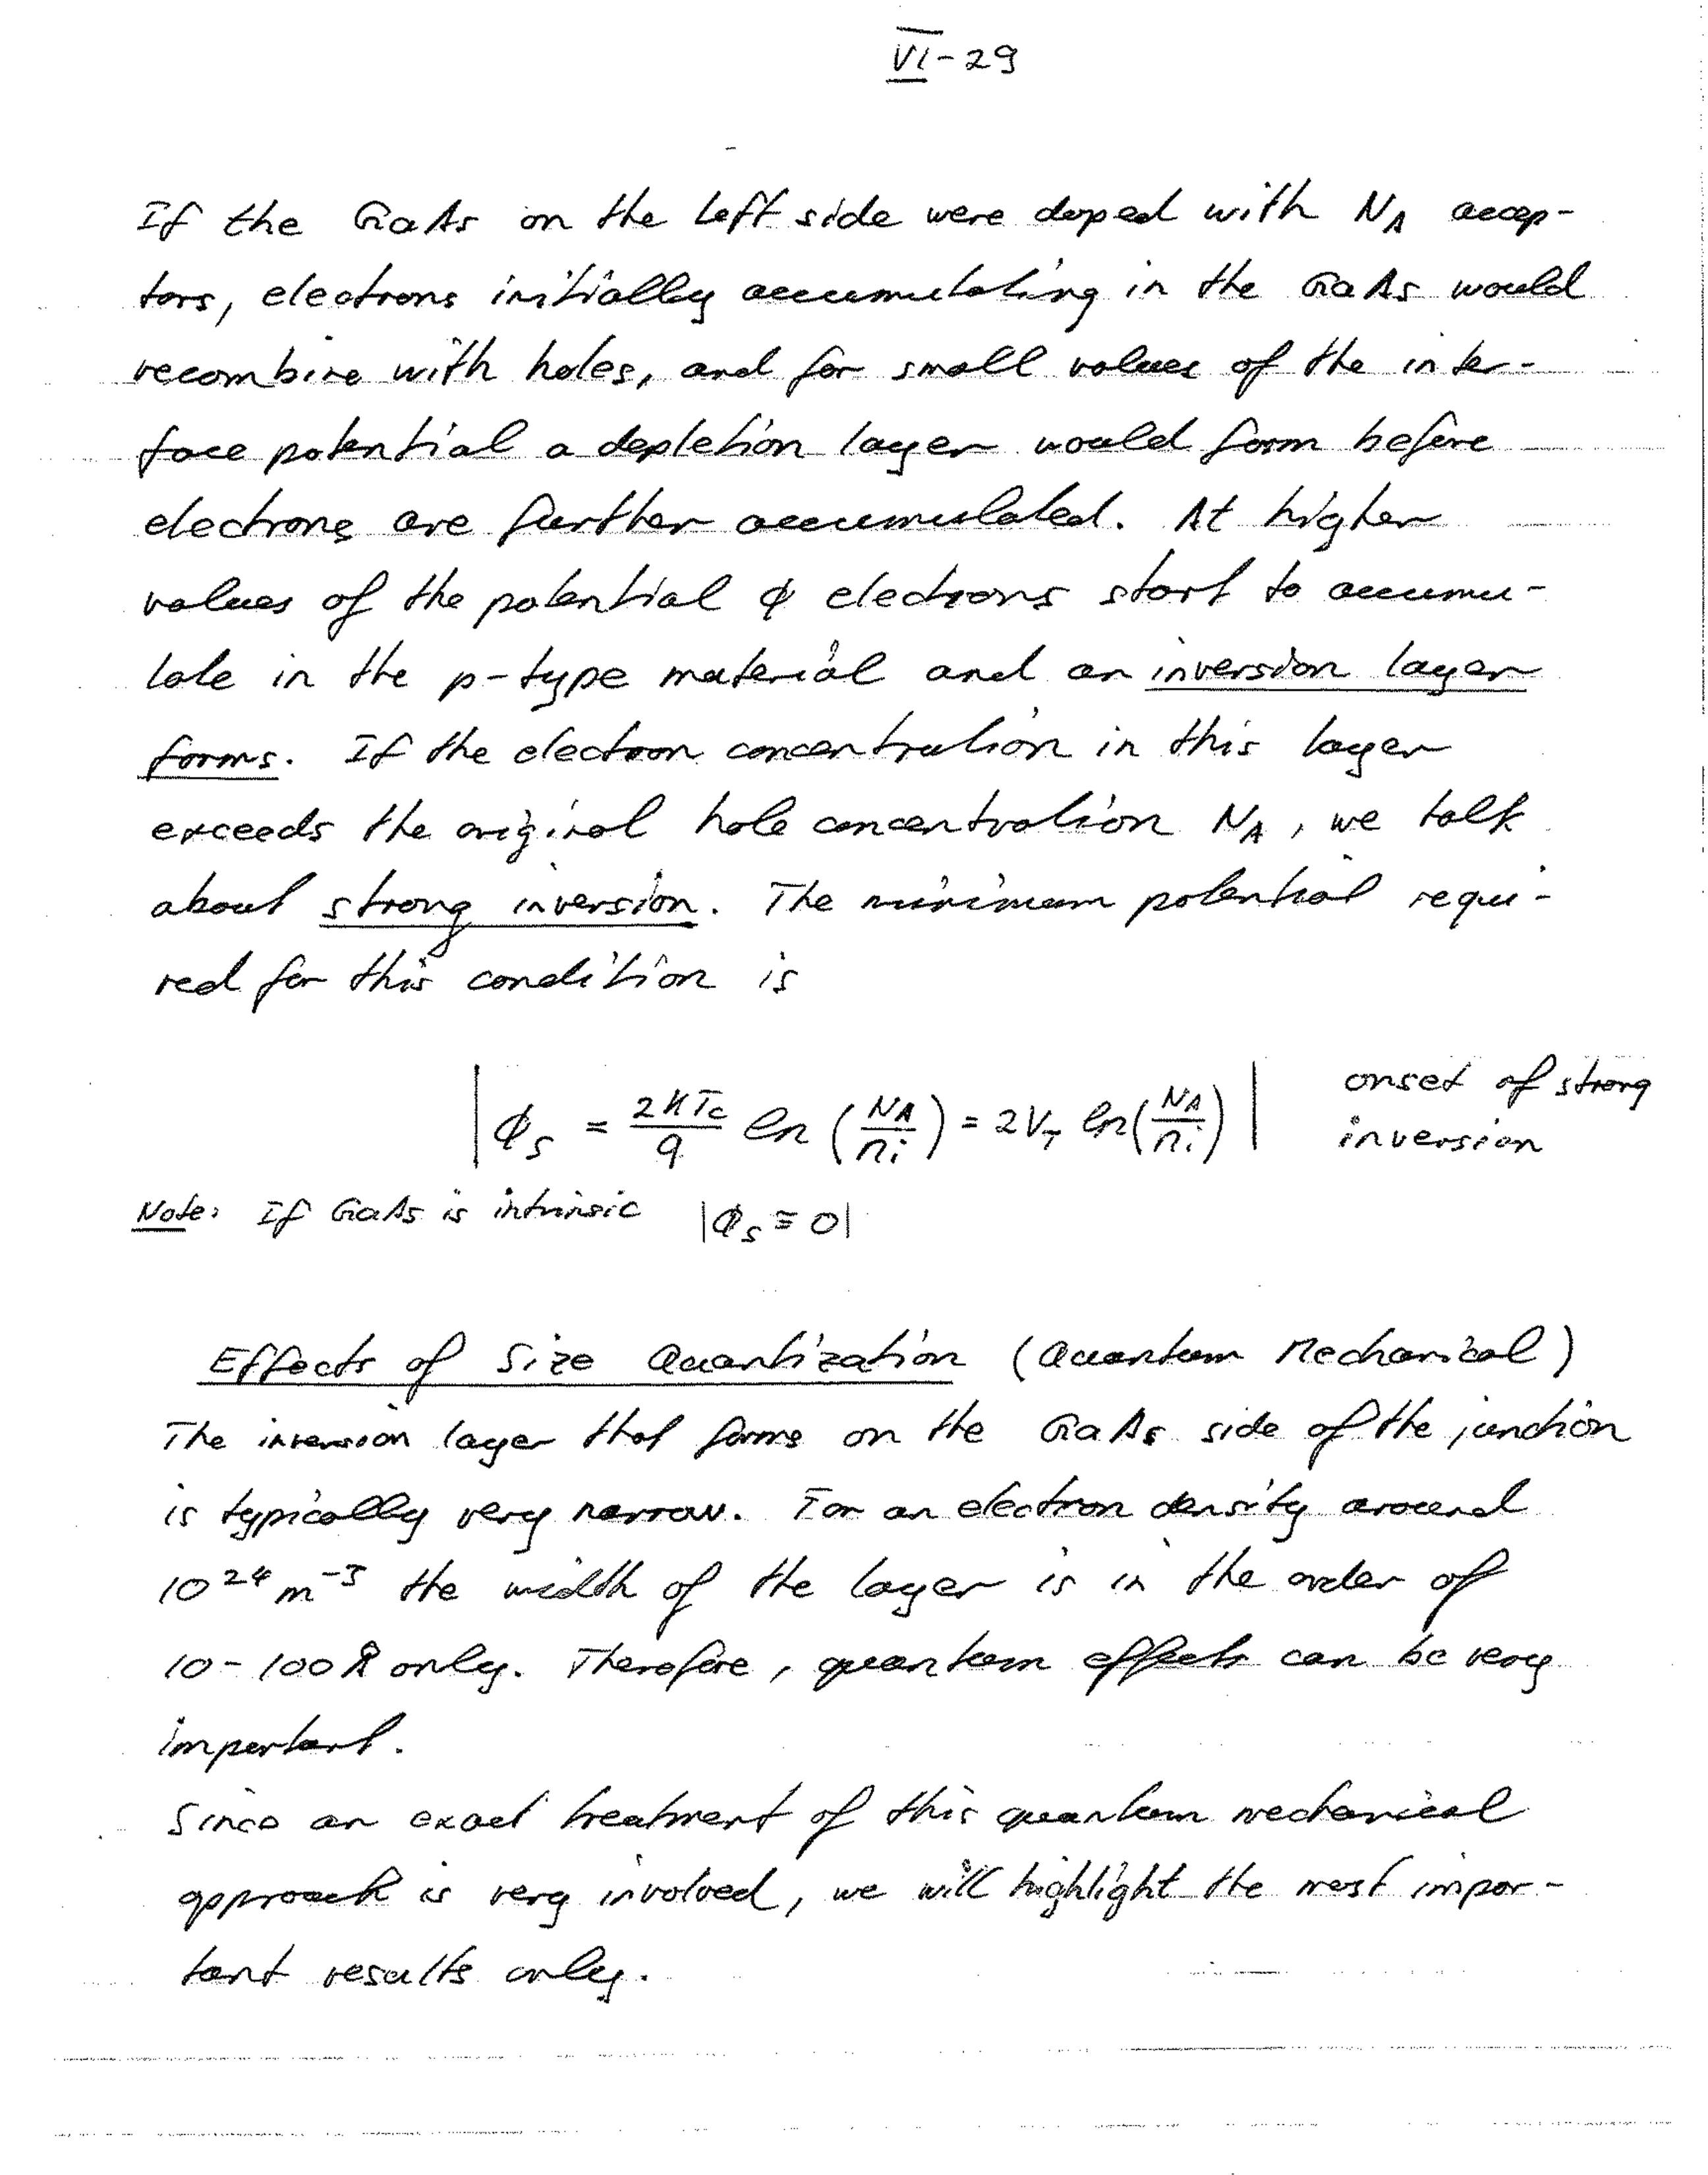 VI-29
If the GaAs on the left side were doped with N_A accep-
tors, electrons initially accumulating in the GaAs would
recombine with holes, and for small values of the inter-
face potential a depletion layer would form before
electrons are further accumulated. At higher
values of the potential ϕ electrons start to accumu-
late in the p-type material and an inversion layer
forms. If the electron concentration in this layer
exceeds the original hole concentration N_A, we talk
about strong inversion. The minimum potential requi-
red for this condition is
| ϕ_S = 2kT_c/q ln (N_A/n_i) = 2V_T ln(N_A/n_i) | onset of strong
inversion
Note: If GaAs is intrinsic |ϕ_S ≡ 0|
Effects of Size Quantization (Quantum Mechanical)
The inversion layer that forms on the GaAs side of the junction
is typically very narrow. For an electron density around
10^24 m^-3 the width of the layer is in the order of
10-100 Å only. Therefore, quantum effects can be very
important.
Since an exact treatment of this quantum mechanical
approach is very involved, we will highlight the most impor-
tant results only.